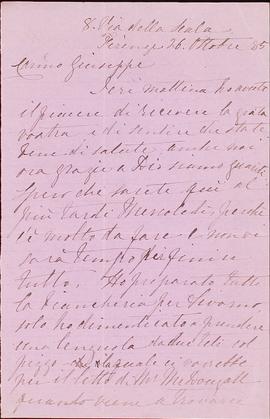 8. Via della Scala
Firenze 26. Ottobre '85
Carino Giuseppe
Jeri mattina ho avuto
il piacere di ricevere la grata
vostra e di sentire che state
bene di salute anche noi
ora grazie a Dio siamo guariti
spero che sarete qui al
più tardi Mercoledì, perche
c'è molto da fare e non vi
sarà tempo per finire
tutto. Ho preparato tutto
la biancheria per Livorno,
solo ho dimenticato a prendere
una lenzuola da due teli col
pizzo la quale ci vorrebbe
per il letto di Mr McDougall
quando viene a trovarci